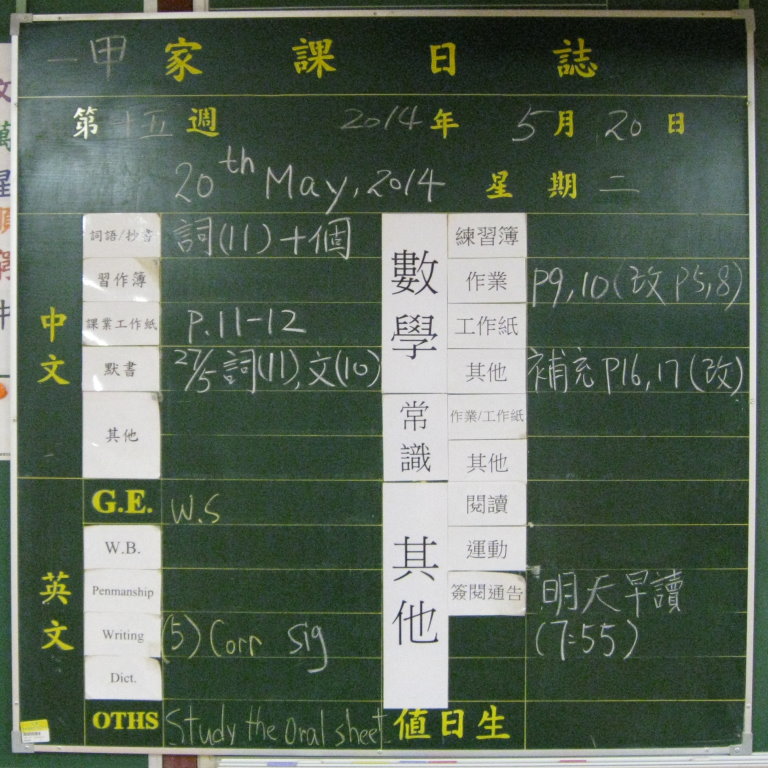 一甲 家 課 日 誌
第 十五 週 2014 年 5 月 20 日
20th May, 2014 星 期 二
中文
詞語/抄書 詞(11)十個
習作簿
課業工作紙 P.11-12
默書 27/5 詞(11),文(10)
其他
英文
G.E. W.S
W.B.
Penmanship
Writing (5) Corr sig
Dict.
OTHS Study the oral sheet
數學
練習簿
作業 P9,10(改 P5,8)
工作紙
其他 補充 P16,17(改)
常識
作業/工作紙
其他
其他
閱讀
運動
簽閱通告 明天早讀
(7:55)
值日生